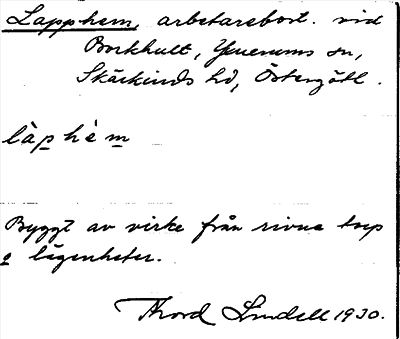 Lapphem, arbetarebost. vid
Borkhult, Yxnerums sn,
Skärkinds hd, Östergötl.
làp hè m
Byggt av virke från rivna torp
o lägenheter.
Thord Lindell 1930.